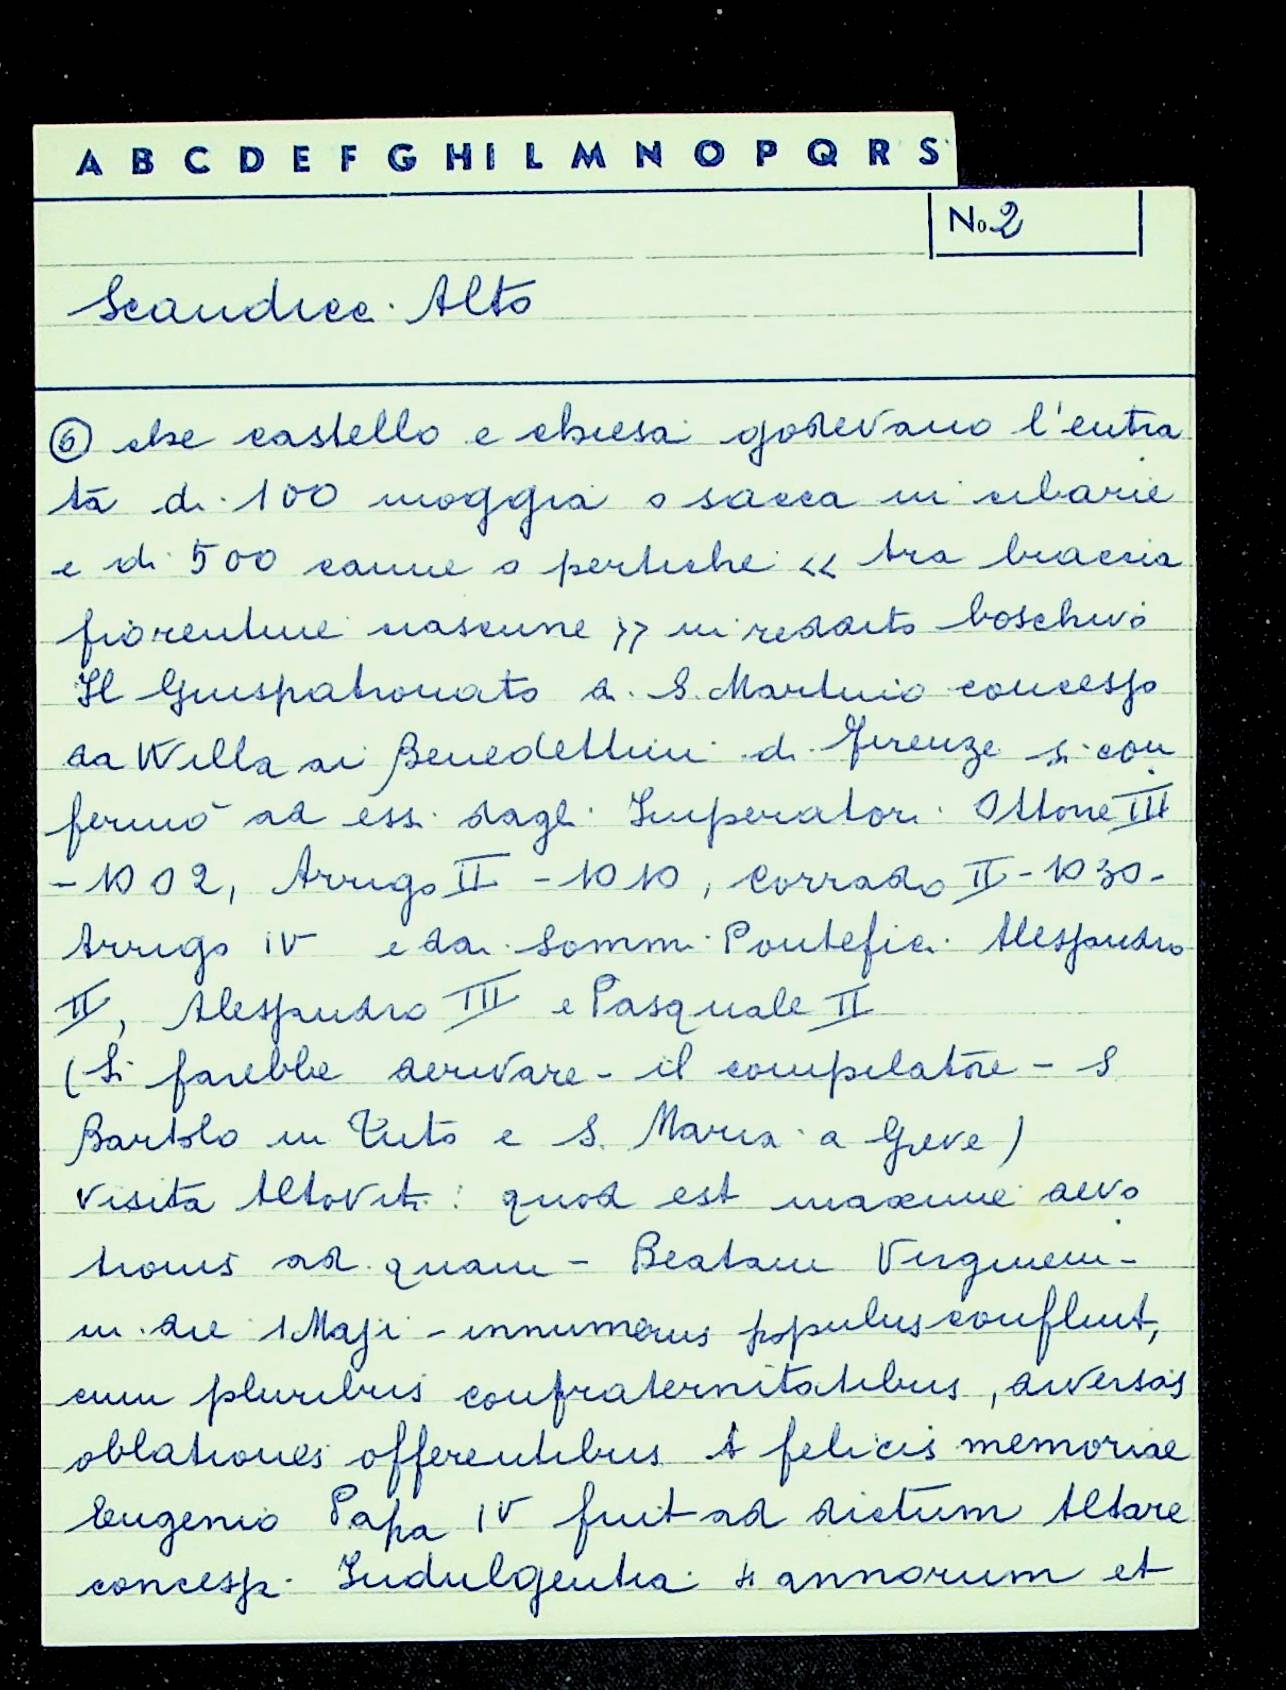 A B C D E F G H I L M N O P Q R S
No 2
Scandicci Alto
⑥ che castello e chiesa godevano l'entra
ta di 100 moggia o sacca in cibarie
e di 500 canne o pertiche « tra braccia
fiorentine nascune » in reddito boschivo
Il Giuspatronato di S. Martino concesso
da Willa ai Benedettini di Firenze si con
fermò ad essi dagli Imperatori Ottone III
- 1002, Arrigo II - 1010, Corrado II - 1030 -
Arrigo IV e dai Sommi Pontefici Alessandro
II, Alessandro III e Pasquale II
(Si farebbe derivare - il compilatore - S
Bartolo in Tuto e S. Maria a Greve)
Visita Altoviti: quod est maxime devo
tionis ad quam - Beatam Virginem -
in die 1 Maji - innumerus populus confluit,
cum pluribus confraternitatibus, diversas
oblationes offerentibus A felicis memoriae
Eugenio Papa IV fuit ad dictum Altare
concess. Indulgentia 4 annorum et